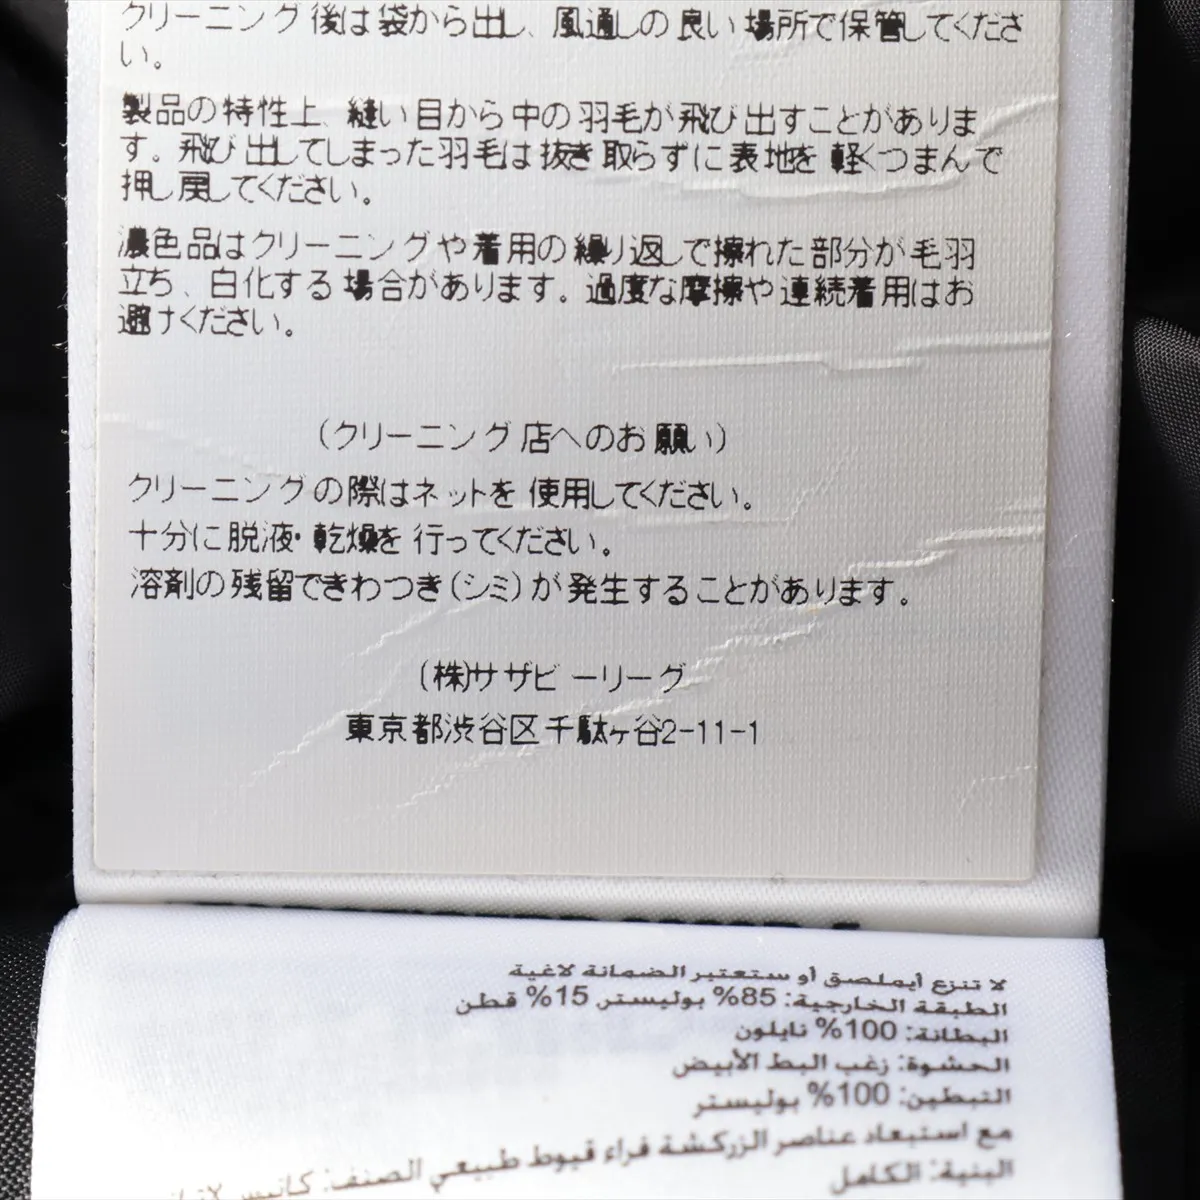 クリーニング後は袋から出し、風通しの良い場所で保管してくださ
い。
製品の特性上、縫い目から中の羽毛が飛び出すことがありま
す。飛び出してしまった羽毛は抜き取らずに表地を軽くつまんで
押し戻してください。
濃色品はクリーニングや着用の繰り返しで擦れた部分が毛羽
立ち、白化する場合があります。過度な摩擦や連続着用はお
避けください。
(クリーニング店へのお願い)
クリーニングの際はネットを使用してください。
十分に脱液・乾燥を行ってください。
溶剤の残留できわつき(シミ)が発生することがあります。
(株)サザビーリーグ
東京都渋谷区千駄ヶ谷2-11-1
لا تنزع أيملصق أو ستعتبر الضمانة لاغية
الطبقة الخارجية: 85% بوليستر 15% قطن
البطانة: 100% نايلون
الحشوة: زغب البط الأبيض
التبطين: 100% بوليستر
مع استبعاد عناصر الزركشة فراء قيوط طبيعي الصنف: كانيس
البنية: الكامل